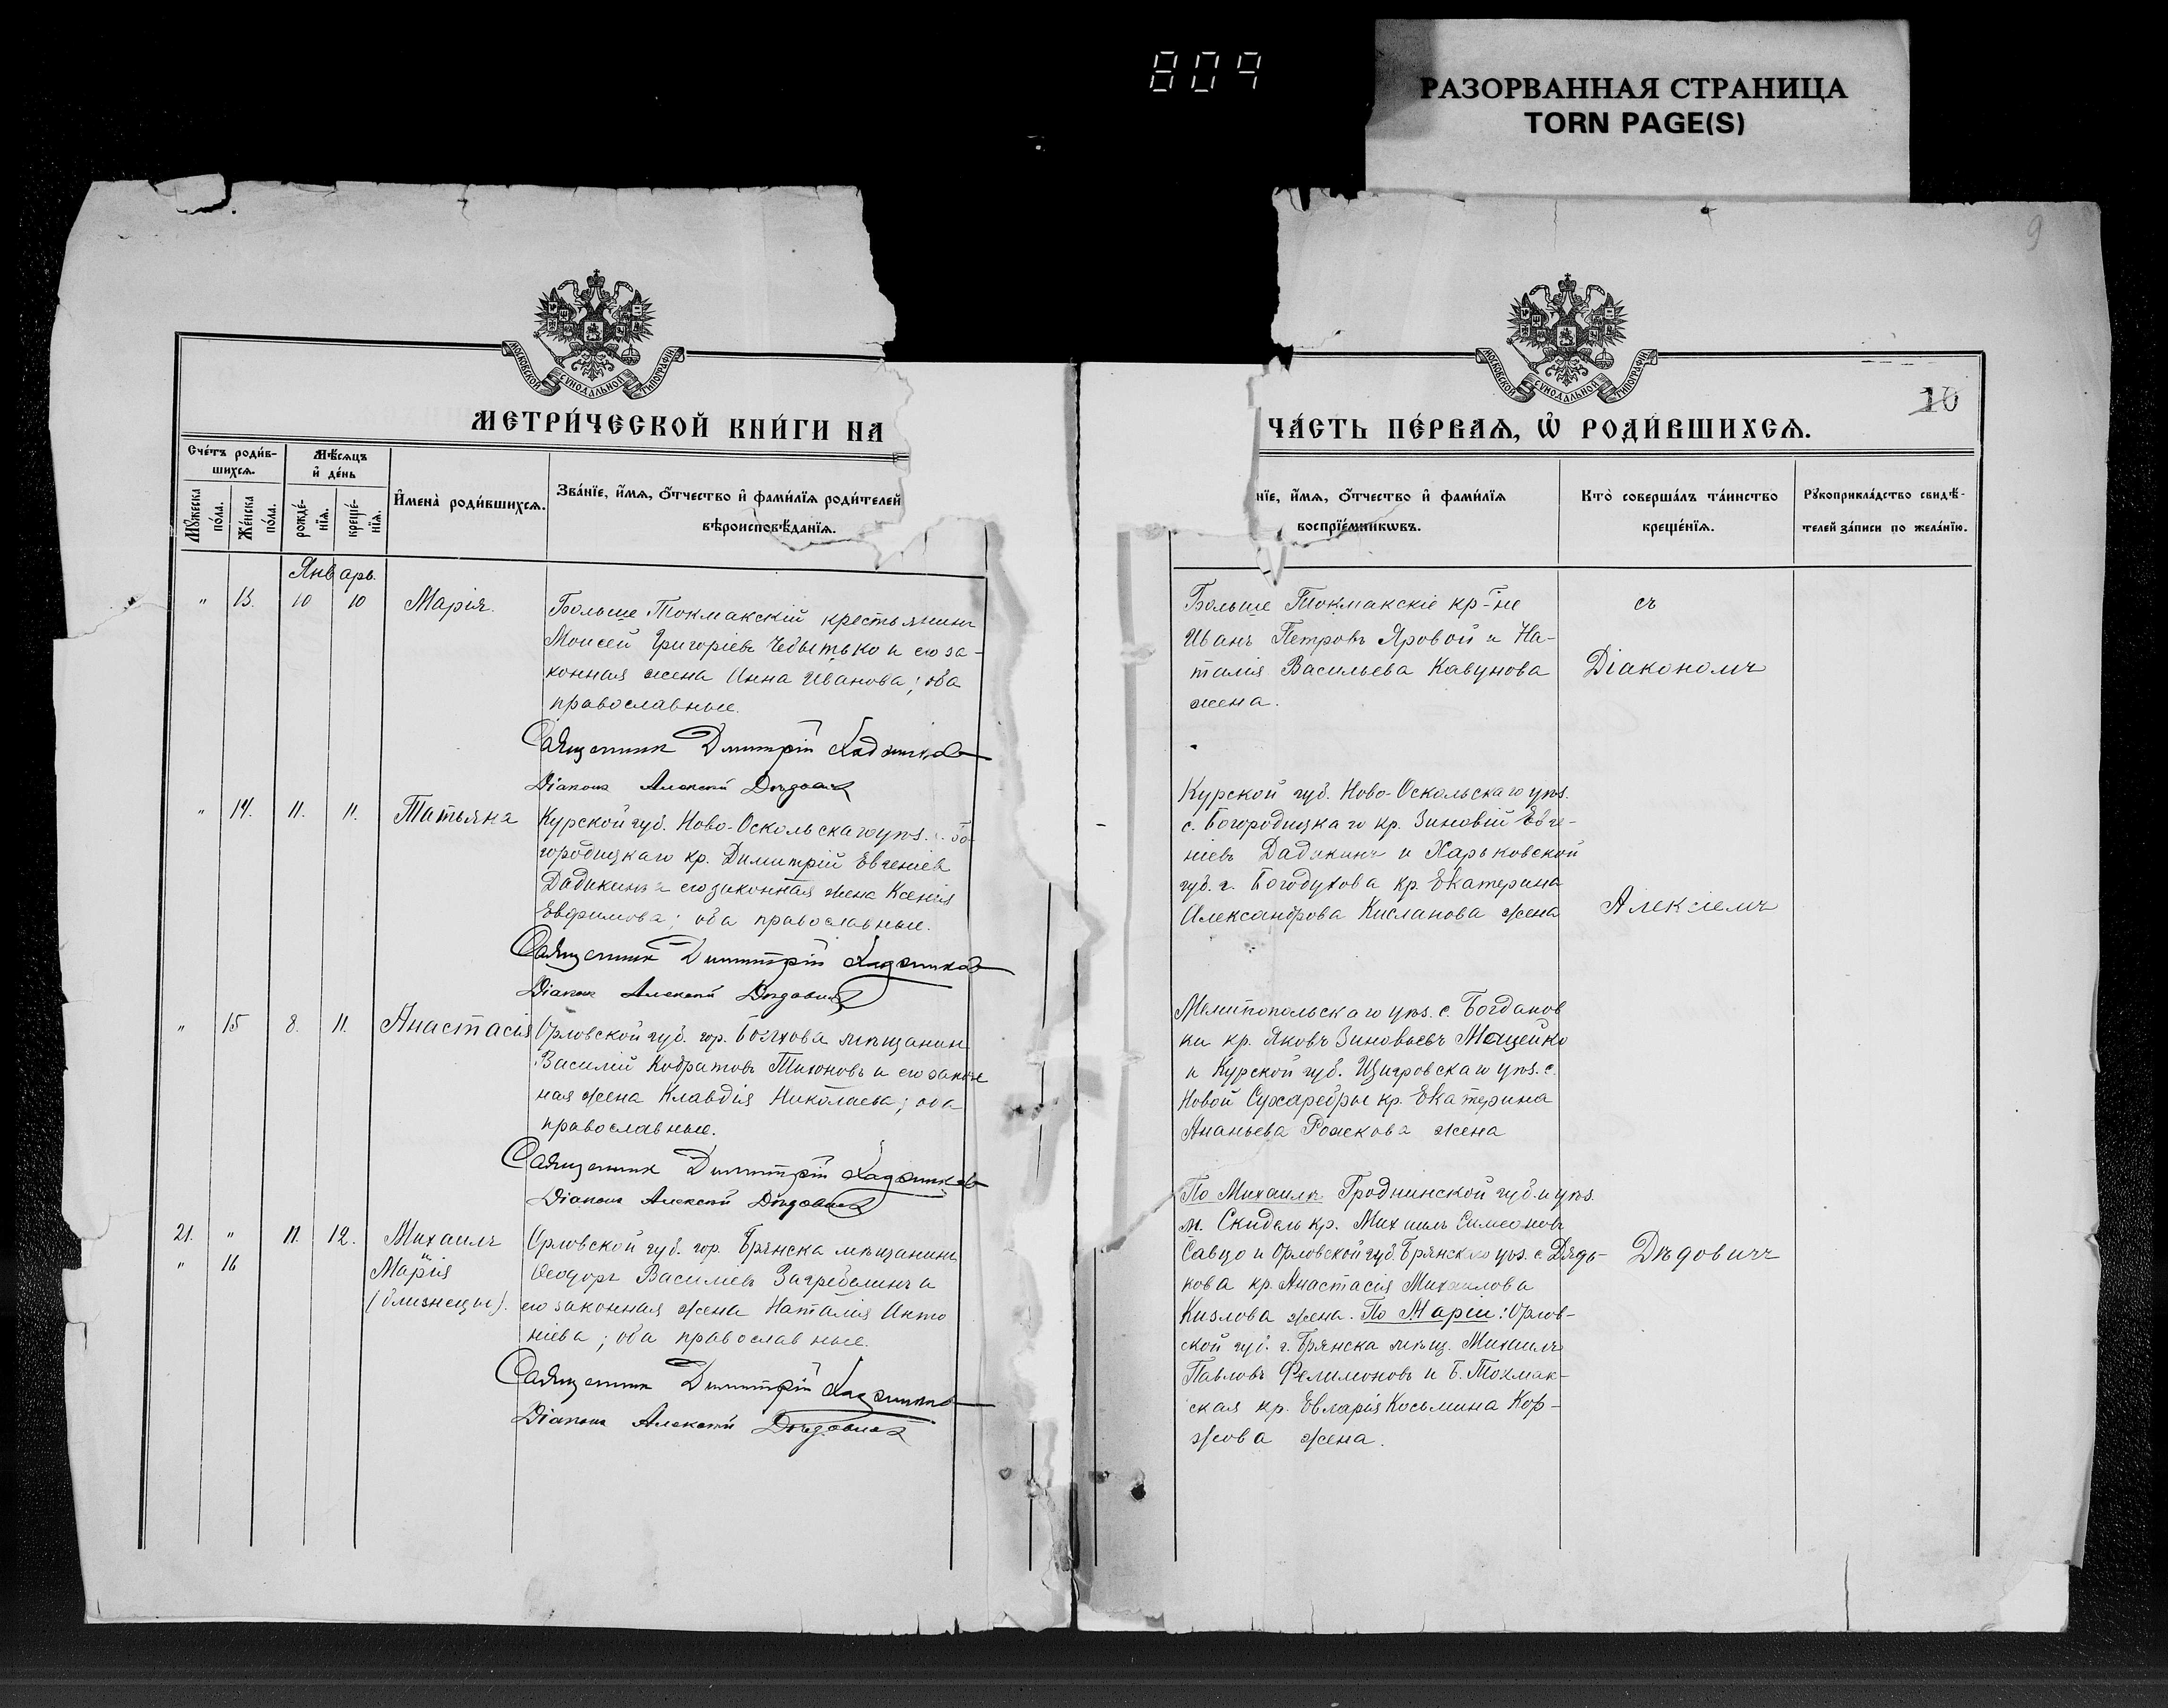 809
РАЗОРВАННАЯ СТРАНИЦА
TORN PAGE(S)
9
10
МОСКОВСКОЙ СѴНОДАЛЬНОЙ ТИПОГРАФІИ
МЕТРИ́ЧЕСКОЙ КНИ́ГИ НА
Сче́тъ роди́в-
шихсѧ.
Мѣ́сѧцъ
и҆ де́нь
Мꙋ́жеска
по́ла.
Же́нска
по́ла.
рожде́-
нїѧ.
креще́-
нїѧ.
И҆мена̀ роди́вшихсѧ.
Зва́нїе, и҆́мѧ, ѻ҆́тчество и҆ фами́лїѧ роди́телей
вѣроисповѣ́данїѧ.
Январь.
" 13. 10 10 Марія.
Больше Токмакскій крестьянинъ
Моисей Григоріевъ Чебытько и его за-
конная жена Анна Иванова; оба
православные.
Священникъ Димитрій
Діаконъ Алексій Дѣдовичъ
" 14. 11. 11. Татьяна
Курской губ. Ново-Оскольскаго уѣз. с. Бо-
городицкаго кр. Димитрій Евгеніевъ
Дадикинъ и его законная жена Ксенія
Евфимова; оба православные.
Священникъ Димитрій
Діаконъ Алексій Дѣдовичъ
" 15 8. 11. Анастасія
Орловской губ. гор. Болхова мѣщанинъ
Василій Кодратовъ Тихоновъ и его закон
ная жена Клавдія Николаева; оба
православные.
Священникъ Димитрій
Діаконъ Алексій Дѣдовичъ
21. " 11. 12. Михаилъ
" 16 Марія
(близнецы).
Орловской губ. гор. Брянска мѣщанинъ
Ѳеодоръ Василіевъ Загребелинъ и
его законная жена Наталія Анто
ніева; оба православные.
Священникъ Димитрій
Діаконъ Алексій Дѣдовичъ
МОСКОВСКОЙ СѴНОДАЛЬНОЙ ТИПОГРАФІИ
ЧА́СТЬ ПЕ́РВАѦ, Ѽ РОДИ́ВШИХСѦ.
нїе, и҆́мѧ, ѻ҆́тчество и҆ фами́лїѧ
воспрїе́мникѡвъ.
Кто̀ соверша́лъ та́инство
креще́нїѧ.
Рꙋкоприкла́дство свидѣ́-
телей за́писи по жела́нїю.
Больше Токмакскіе кр-не
Иванъ Петровъ Яровой и На-
талія Васильева Кавунова
жена.
съ
Діакономъ
Курской губ. Ново-Оскольскаго уѣз.
с. Богородицкаго кр. Зиновій Евге-
ніевъ Дадикинъ и Харьковской
губ. г. Богодухова кр. Екатерина
Александрова Кисланова жена
Алексіемъ
Мелитопольскаго уѣз. с. Богданов
ки кр. Яковъ Зиновьевъ Мацейко
и Курской губ. Щигровскаго уѣз. с.
Новой Сухаребры кр. Екатерина
Ананьева Рожкова жена
По Михаилѣ Гроднинской губ. и уѣз.
м. Скидель кр. Михаилъ Симеоновъ
Савцо и Орловской губ. Брянскаго уѣз. с. Дядь-
кова кр. Анастасія Михаилова
Козлова жена. По Маріи: Орлов-
ской губ. г. Брянска мѣщ. Михаилъ
Павловъ Филимоновъ и Б. Токмак-
ская кр. Евларія Косьмина Кор-
жова жена.
Дѣдовичъ